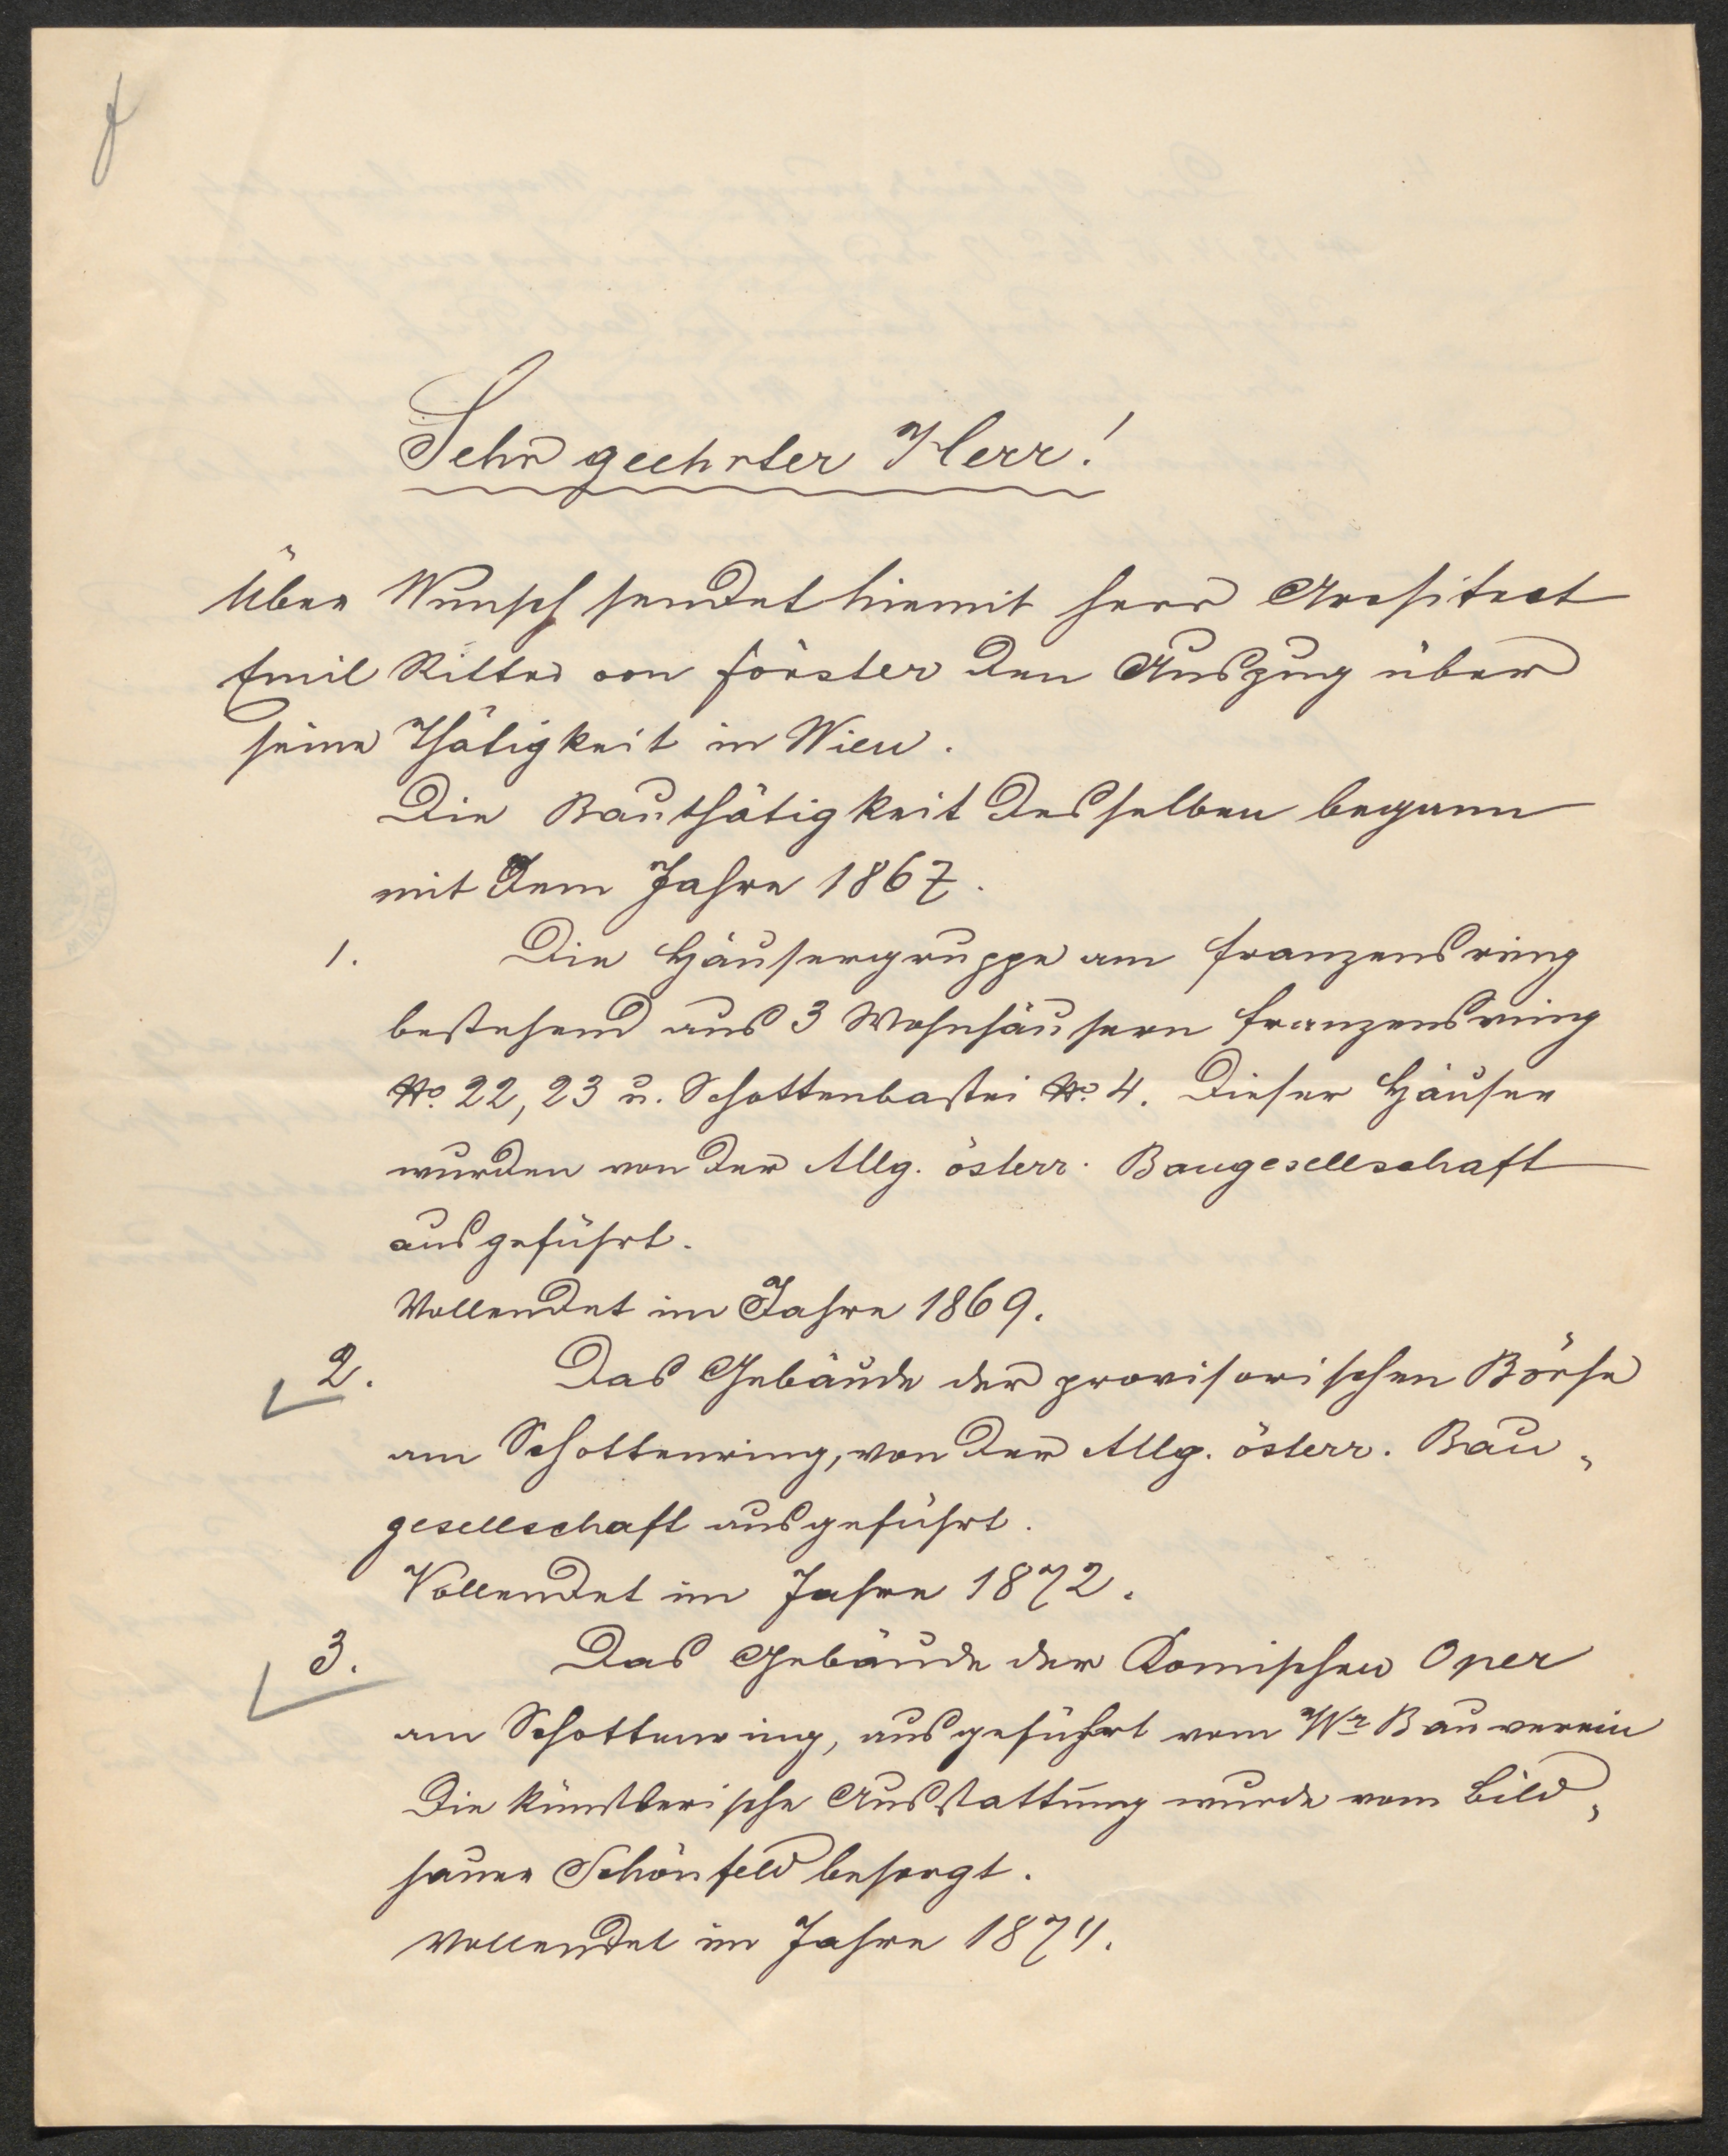 Sehr geehrter Herr!
Über Wunsch sendet hiemit Herr Architect
Emil Ritter von Förster den Auszug über
seine Thätigkeit in Wien.
Die Bauthätigkeit desselben begann
mit dem Jahre 1867.
1. Die Häusergruppe am Franzensring
bestehend aus 3 Wohnhäusern Franzensring
No. 22, 23 u. Schottenbastei No. 4. Dieser Häuser
wurden von der Allg. österr. Baugesellschaft
ausgeführt.
Vollendet im Jahre 1869.
2. Das Gebäude der provisorischen Börse
am Schottenring, von der Allg. österr. Bau„
gesellschaft ausgeführt.
Vollendet im Jahre 1872.
3. Das Gebäude der Komischen Oper
am Schottenring, ausgeführt vom Wr Bauverein
Die künstlerische Ausstattung wurde vom Bild„
hauer Schönfeld besorgt.
Vollendet im Jahre 1874.